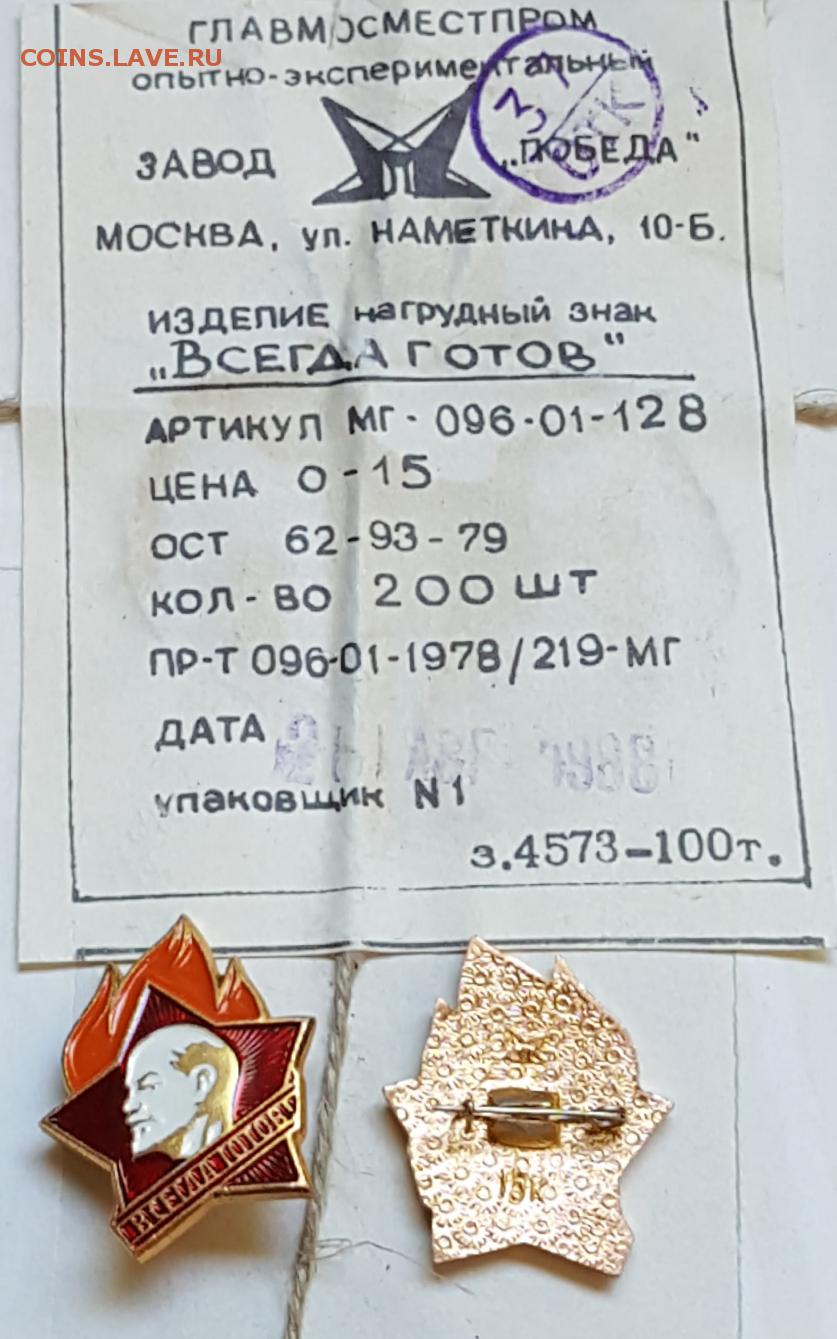 COINS.LAVE.RU
ГЛАВМОСМЕСТПРОМ
опытно-экспериментальный
ЗАВОД „ПОБЕДА"
МОСКВА, ул. НАМЕТКИНА, 10-Б.
ИЗДЕЛИЕ нагрудный знак
„ВСЕГДА ГОТОВ"
АРТИКУЛ МГ-096-01-128
ЦЕНА 0-15
ОСТ 62-93-79
КОЛ-ВО 200 ШТ
ПР-Т 096-01-1978/219-МГ
ДАТА
упаковщик N1
з.4573-100т.
ВСЕГДА ГОТОВ
15к